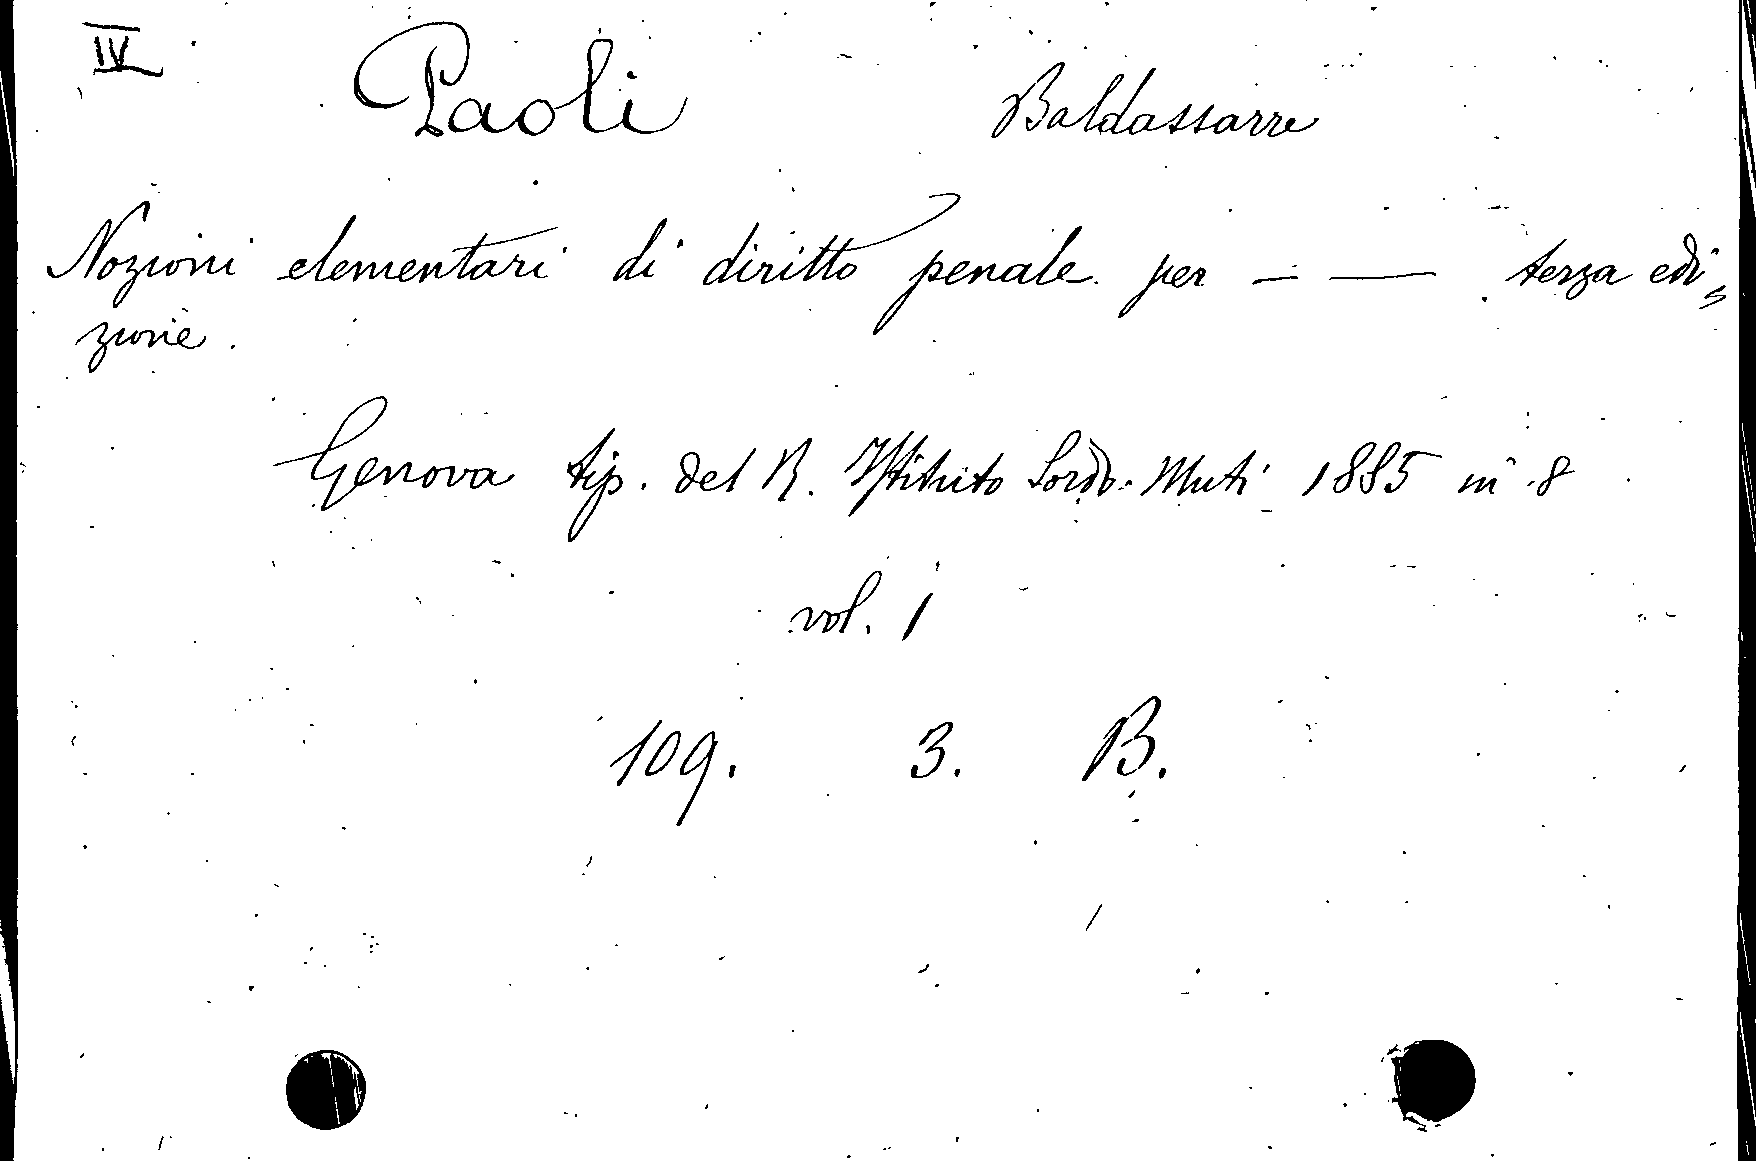 IV
Paoli Baldassarre
Nozioni elementari di diritto penale per — — terza edi„
zione.
Genova tip. del R. Istituto Sordo-Muti 1885 in 8
vol. 1
109. 3. B.